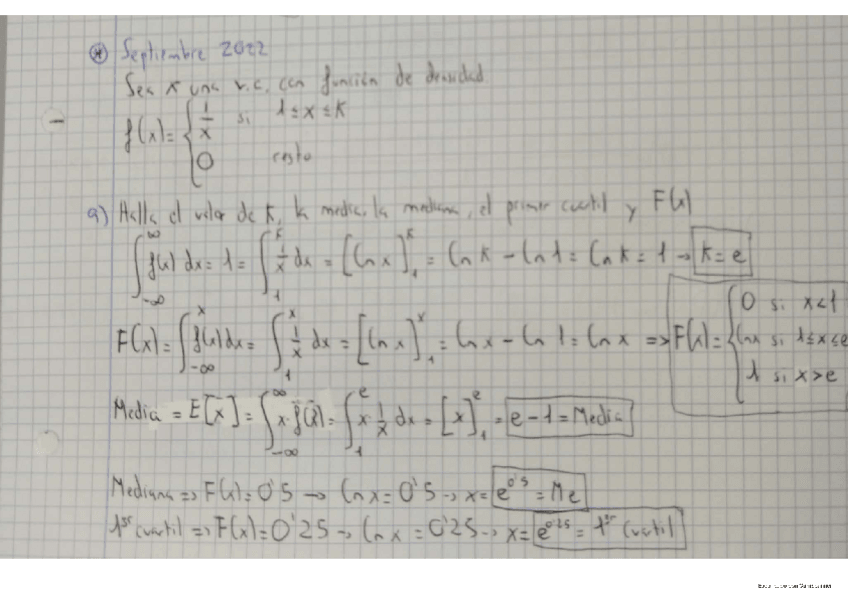 * Septiembre 2022
Sea x una v.c. con función de densidad
f(x)= { 1/x si 1≤x≤k
0 resto
a) Halla el valor de K, la media, la mediana, el primer cuartil y F(x)
∫_{-∞}^{∞} f(x) dx = 1 = ∫_1^k 1/x dx = [Ln x]_1^k = Ln K - Ln 1 = Ln K = 1 → K = e
F(x) = ∫_{-∞}^x f(x) dx = ∫_1^x 1/x dx = [Ln x]_1^x = Ln x - Ln 1 = Ln x => F(x) = { 0 si x<1
Lnx si 1≤x≤e
1 si x>e
Media = E[x] = ∫_{-∞}^{∞} x·f(x) = ∫_1^e x·1/x dx = [x]_1^e = e-1 = Media
Mediana => F(x) = 0'5 → Ln x = 0'5 → x = e^{0'5} = Me
1er cuartil => F(x) = 0'25 → Ln x = 0'25 → x = e^{0'25} = 1er cuartil